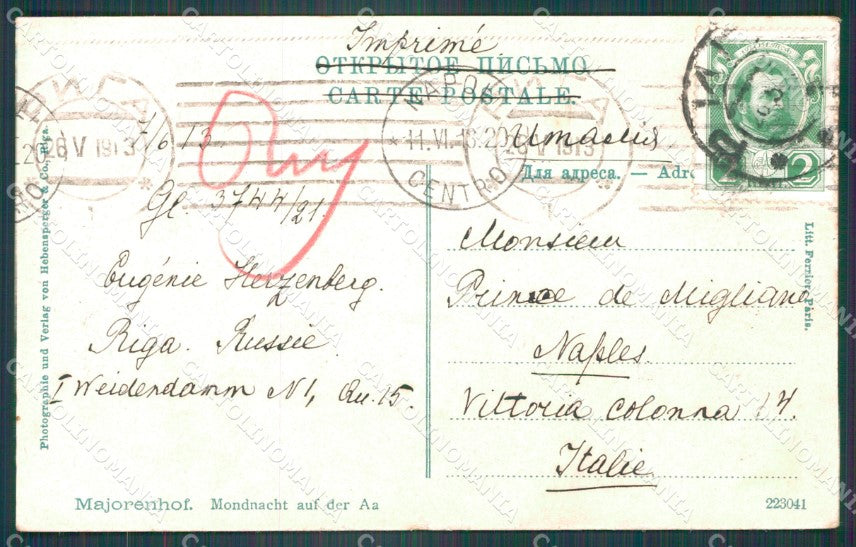 Imprimé
ОТКРЫТОЕ ПИСЬМО
CARTE POSTALE.
Италия
Для адреса. — Adre
1/6 13
Gl. 3744/21.
Eugénie Herzenberg.
Riga. Russie.
I Weidendamm N1, Qu. 15.
Monsieur
Prince de Migliano
Naples.
Vittoria Colonna 14.
Italie
РИГА
6 V 1913
NAPOLI
* 11.VI.13.20
CENTRO
Photographie und Verlag von Hebensperger & Co., Riga.
Litt. Ferriere Paris.
Majorenhof. Mondnacht auf der Aa
223041
CARTOLINOMANIA